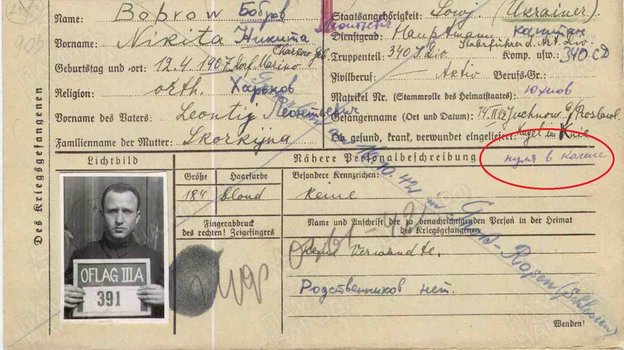 Des Kriegsgefangenen
Bobrow Бобров
Name:
Nikita Никита
Vorname:
Леонтьевич
Geburtstag und -ort: 12.4.1907
Religion: orth. Харьков
Vorname des Vaters: Leontij
Familienname der Mutter: Skorkina
Staatsangehörigkeit: Sowj. (Ukrainer)
Dienstgrad: Hauptmann Капитан
Truppenteil: 340 J. Div. Komp. usw.: 340 СД
Zivilberuf: Aktiv Berufs-Gr.:
Matrikel Nr. (Stammrolle des Heimatstaates): Юхнов
Gefangennahme (Ort und Datum):
Ob gesund, krank, verwundet eingeliefert: Kugel im Knie
пуля в колене
Lichtbild
Nähere Personalbeschreibung
Größe Haarfarbe
184 blond
Besondere Kennzeichen:
Keine
Fingerabdruck
des rechten! Zeigefingers
Name und Anschrift der zu benachrichtigenden Person in der Heimat
des Kriegsgefangenen
Verwandte.
Родственников нет.
Wenden!
OFLAG III A
391
16.10.42 in Gross-Rosen (Schlesien)